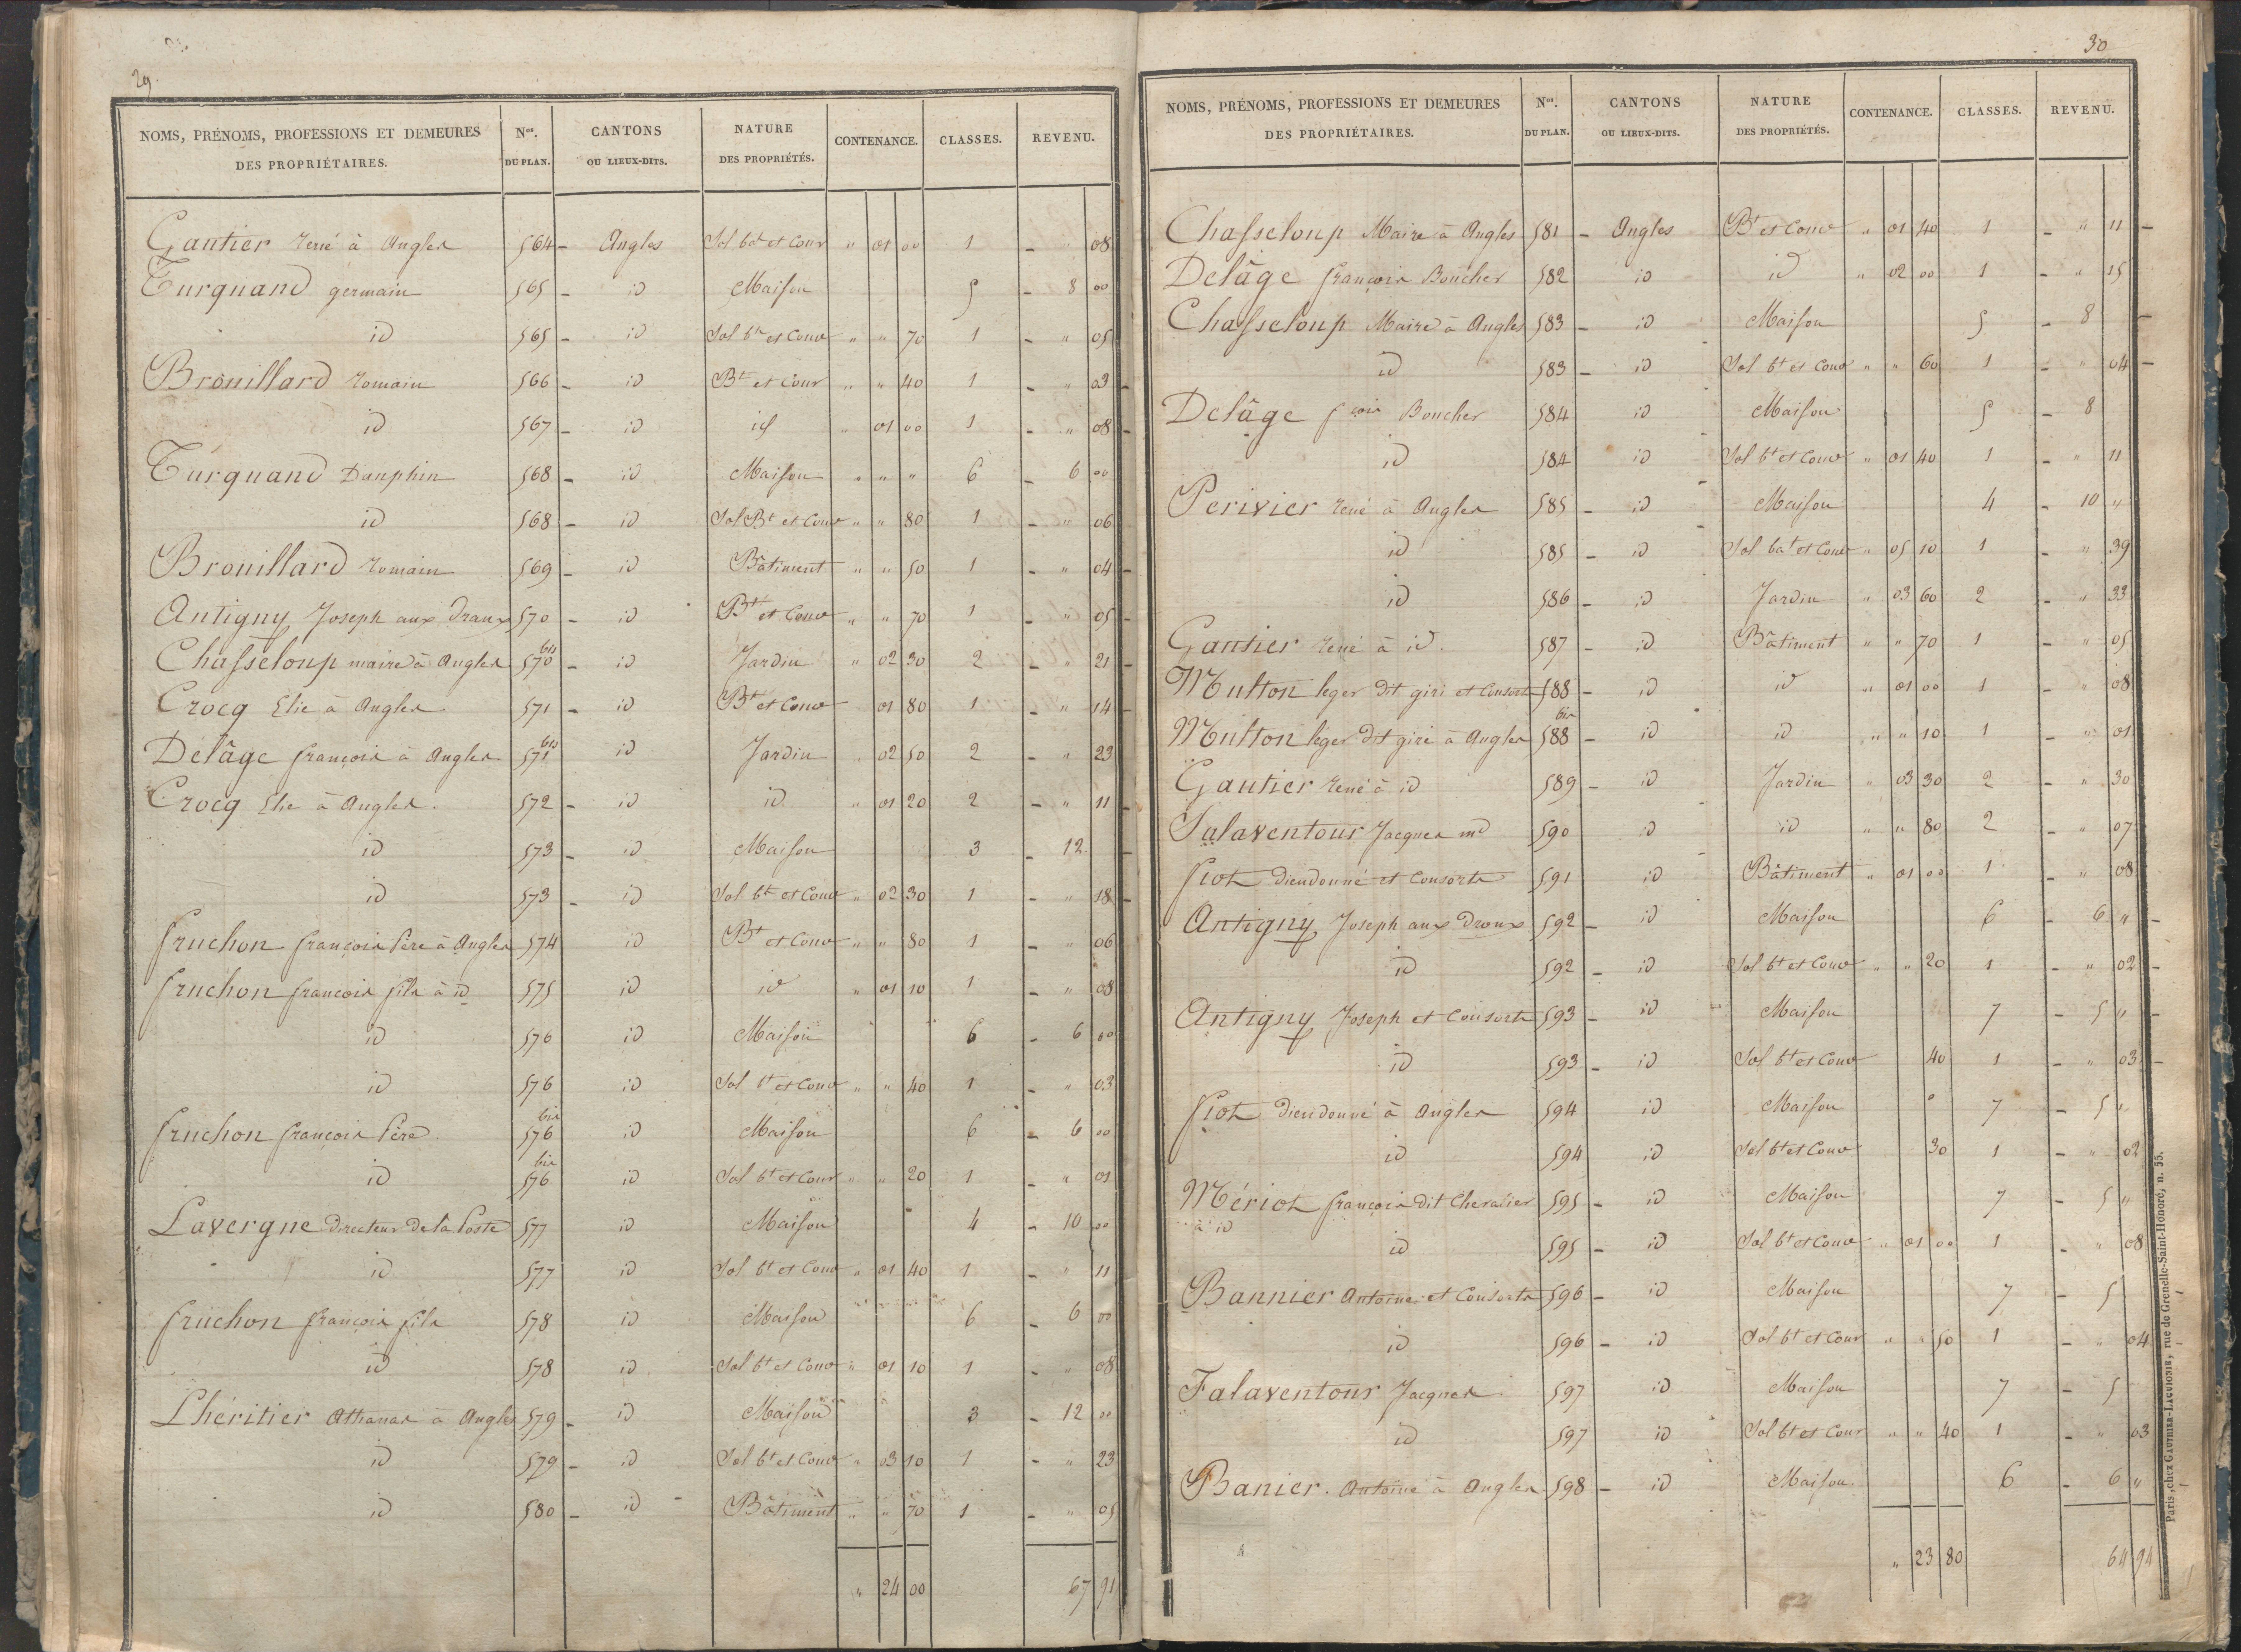 29
NOMS, PRÉNOMS, PROFESSIONS ET DEMEURES DES PROPRIÉTAIRES. Nos. DU PLAN. CANTONS OU LIEUX-DITS. NATURE DES PROPRIÉTÉS. CONTENANCE. CLASSES. REVENU.
Gautier René à Angles 564 - Angles Sol bat et Cour " 01 00 1 - " 08
Turquand germain 565 - id Maison 5 - 8 00
id 565 - id Sol bt et Cour " " 70 1 - " 05
Brouillard Romain 566 - id Bt et Cour " " 40 1 - " 03 -
id 567 - id id " 01 00 1 - " 08 -
Turquand Dauphin 568 - id Maison " " " 6 - 6 00
id 568 - id Sol Bt et Cour " " 80 1 - " 06
Brouillard Romain 569 - id Bâtiment " " 50 1 - " 04 -
Antigny Joseph aux Draux 570 - id Bt et Cour " " 70 1 - " 05 -
Chasseloup maire à Angles 570 bis - id Jardin " 02 30 2 - " 21 -
Crocq Elie à Angles 571 - id Bt et Cour 01 80 1 - " 14 -
Delâge françois à Angles. 571 bis id Jardin " 02 50 2 - " 23
Crocq Elie à Angles. 572 - id id " 01 20 2 - " 11 -
id 573 - id Maison 3 - 12 -
id 573 - id Sol bt et Cour " 02 30 1 - " 18 -
fruchon françois Père à Angles 574 id Bt et Cour " " 80 1 - " 06
fruchon françois fils à id 575 id id " 01 10 1 - " 08
id 576 id Maison 6 - 6 00
id 576 id Sol bt et Cour " " 40 1 - " 03
fruchon françois Père. 576 bis id Maison 6 - 6 00
id 576 bis id Sol bt et Cour " " 20 1 - " 01
Lavergne Directeur De la Poste 577 id Maison 4 - 10 00
id 577 id Sol bt et Cour " 01 40 1 - " 11
fruchon françois fils 578 id Maison 6 - 6 00
id 578 id Sol bt et Cour " 01 10 1 - " 08
Lhéritier Athanas à Angles 579 - id Maison 3 - 12 00
id 579 - id Sol bt et Cour " 03 10 1 - " 23
id 580 - id - Bâtiment " " 70 1 - " 05
" 24 00 67 91
30
NOMS, PRÉNOMS, PROFESSIONS ET DEMEURES DES PROPRIÉTAIRES. Nos. DU PLAN. CANTONS OU LIEUX-DITS. NATURE DES PROPRIÉTÉS. CONTENANCE. CLASSES. REVENU.
Chasseloup Maire à Angles 581 - Angles Bt et Cour " 01 40 1 - " 11 -
Delâge françois Boucher 582 id id " 02 00 1 - " 15
Chasseloup Maire à Angles 583 - id Maison 5 - 8 -
id 583 - id Sol bt et Cour " " 60 1 - " 04 -
Delâge fçois Boucher 584 id Maison 5 - 8
id 584 id Sol bt et Cour " 01 40 1 - " 11
Perivier René à Angles 585 - id Maison 4 - 10 "
id 585 - id Sol bat et Cour " 05 10 1 - " 39
id 586 - id Jardin " 03 60 2 - " 33
Gautier René à id. 587 - id Bâtiment " " 70 1 - " 05
Multon leger dit giri et Consorts 588 - id id " 01 00 1 - " 08
Multon léger dit giri à Angles 588 bis - id id " " 10 1 - " 01
Gautier René à id 589 - id Jardin " 03 30 2 - " 30
Salaventour Jacques md 590 id id " " 80 2 - " 07
fiot dieudonné et Consorts 591 id Bâtiment " 01 00 1 - " 08
Antigny Joseph aux Droux 592 - id Maison 6 - 6 " -
id 592 - id Sol bt et Cour " " 20 1 - " 02 -
Antigny Joseph et Consorts 593 - id Maison 7 - 5 " -
id 593 - id Sol bt et Cour 40 1 - " 03 -
fiot dieudonné à Angles 594 id Maison 7 - 5 "
id 594 id Sol bt et Cour 30 1 - " 02
Mériot françois dit Chevalier 595 - id Maison 7 - 5 "
à id
id 595 - id Sol bt et Cour " 01 00 1 - " 08
Bannier Antoine et Consorts 596 - id Maison 7 - 5 -
id 596 - id Sol bt et Cour " " 50 1 - " 04 -
Falaventour Jacques 597 id Maison 7 - 5
id 597 id Sol bt et Cour " " 40 1 - " 03
Banier. Antoine à Angles 598 - id Maison. 6 - 6 " -
" 23 80 64 94
Paris, chez GAUTHIER-LAGUIONIE, rue de Grenelle-Saint-Honoré, n. 55.